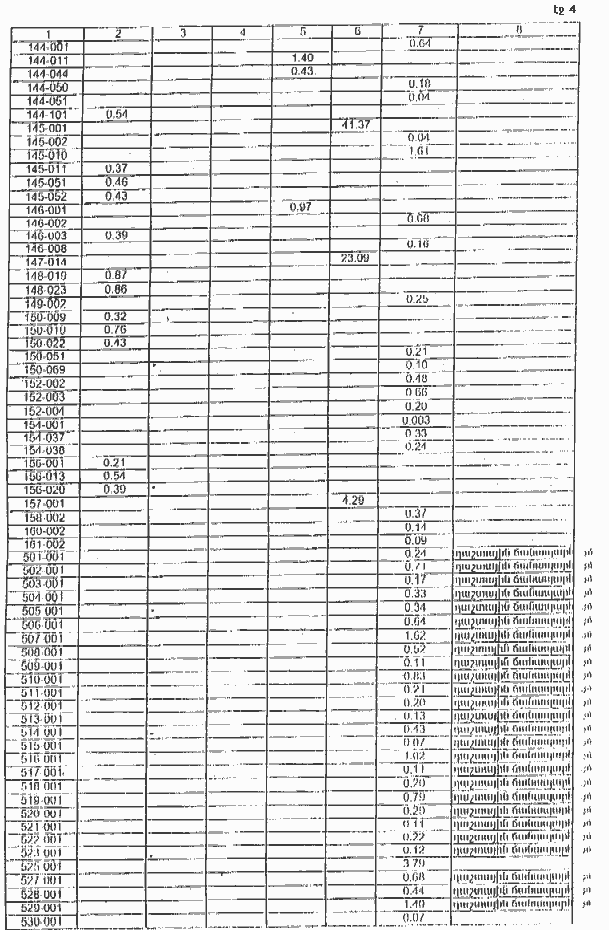 էջ 4
1 2 3 4 5 6 7 8
144-001 0.64
144-011 1.40
144-044 0.43
144-050 0.18
144-051 0.04
144-101 0.54
145-001 41.37
145-002 0.04
145-010 1.61
145-011 0.37
145-051 0.46
145-052 0.43
146-001 0.97
146-002 0.68
146-003 0.39
146-008 0.16
147-014 23.09
148-019 0.87
148-023 0.86
149-002 0.25
150-009 0.32
150-010 0.76
150-022 0.43
150-051 0.21
150-069 0.10
152-002 0.48
152-003 0.66
152-004 0.20
154-001 0.003
154-037 0.33
154-038 0.24
156-001 0.21
156-013 0.54
156-020 0.39
157-001 4.29
158-002 0.37
160-002 0.14
161-002 0.09
501-001 0.24 դաշտային ճանապարհ
502-001 0.71 դաշտային ճանապարհ
503-001 0.17 դաշտային ճանապարհ
504-001 0.33 դաշտային ճանապարհ
505-001 0.34 դաշտային ճանապարհ
506-001 0.64 դաշտային ճանապարհ
507-001 1.62 դաշտային ճանապարհ
508-001 0.52 դաշտային ճանապարհ
509-001 0.11 դաշտային ճանապարհ
510-001 0.83 դաշտային ճանապարհ
511-001 0.21 դաշտային ճանապարհ
512-001 0.20 դաշտային ճանապարհ
513-001 0.13 դաշտային ճանապարհ
514-001 0.43 դաշտային ճանապարհ
515-001 0.07 դաշտային ճանապարհ
516-001 1.02 դաշտային ճանապարհ
517-001 0.11 դաշտային ճանապարհ
518-001 0.20 դաշտային ճանապարհ
519-001 0.79 դաշտային ճանապարհ
520-001 0.20 դաշտային ճանապարհ
521-001 0.11 դաշտային ճանապարհ
522-001 0.22 դաշտային ճանապարհ
523-001 0.12 դաշտային ճանապարհ
525-001 3.79
527-001 0.68 դաշտային ճանապարհ
528-001 0.44 դաշտային ճանապարհ
529-001 1.49 դաշտային ճանապարհ
530-001 0.07